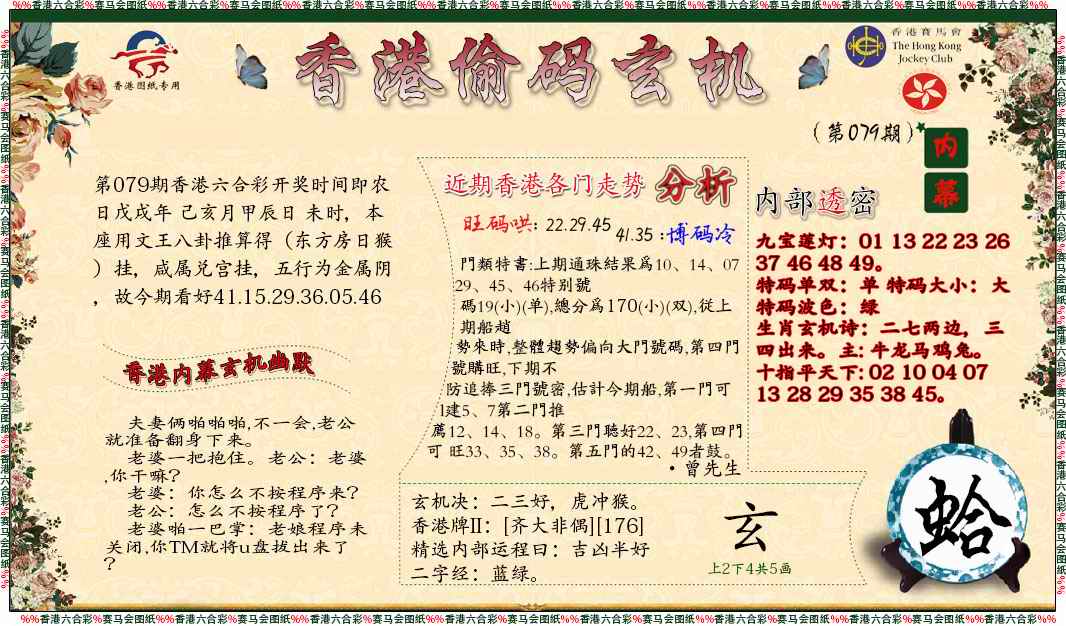 %%香港六合彩%赛马会图纸%%香港六合彩%赛马会图纸%%香港六合彩%赛马会图纸%%香港六合彩%赛马会图纸%%香港六合彩%赛马会图纸%%香港六合彩%赛马会图纸%%香港六合彩%%
香港图纸专用
香港偷码玄机
香港賽馬會
The Hong Kong
Jockey Club
(第079期)
内幕
第079期香港六合彩开奖时间即农
日戊戌年 己亥月甲辰日 未时，本
座用文王八卦推算得（东方房日猴
）挂，咸属兑宫挂，五行为金属阴
，故今期看好41.15.29.36.05.46
香港内幕玄机幽默
夫妻俩啪啪啪,不一会,老公
就准备翻身下来。
老婆一把抱住。老公：老婆
,你干嘛?
老婆：你怎么不按程序来?
老公：怎么不按程序了?
老婆啪一巴掌：老娘程序未
关闭,你TM就将u盘拔出来了
?
近期香港各门走势 分析
旺码哄: 22.29.45
41.35 :博码冷
門類特書:上期通珠結果爲10、14、07
29、45、46特别號
碼19(小)(单),總分爲170(小)(双),從上
期船趙
勢來時,整體趨勢偏向大門號碼,第四門
號購旺,下期不
防追捧三門號密,估計今期船,第一門可
l建5、7第二門推
薦12、14、18。第三門聽好22、23,第四門
可 旺33、35、38。第五門的42、49者鼓。
·曾先生
内部透密
九宝莲灯：01 13 22 23 26
37 46 48 49。
特码单双：单 特码大小：大
特码波色：绿
生肖玄机诗：二七两边，三
四出来。主: 牛龙马鸡兔。
十指平天下: 02 10 04 07
13 28 29 35 38 45。
玄机决：二三好，虎冲猴。
香港牌II：[齐大非偶][176]
精选内部运程曰：吉凶半好
二字经：蓝绿。
玄
上2下4共5画
蛤
%%香港六合彩%赛马会图纸%%香港六合彩%赛马会图纸%%香港六合彩%赛马会图纸%%香港六合彩%赛马会图纸%%香港六合彩%赛马会图纸%%香港六合彩%赛马会图纸%%香港六合彩%%